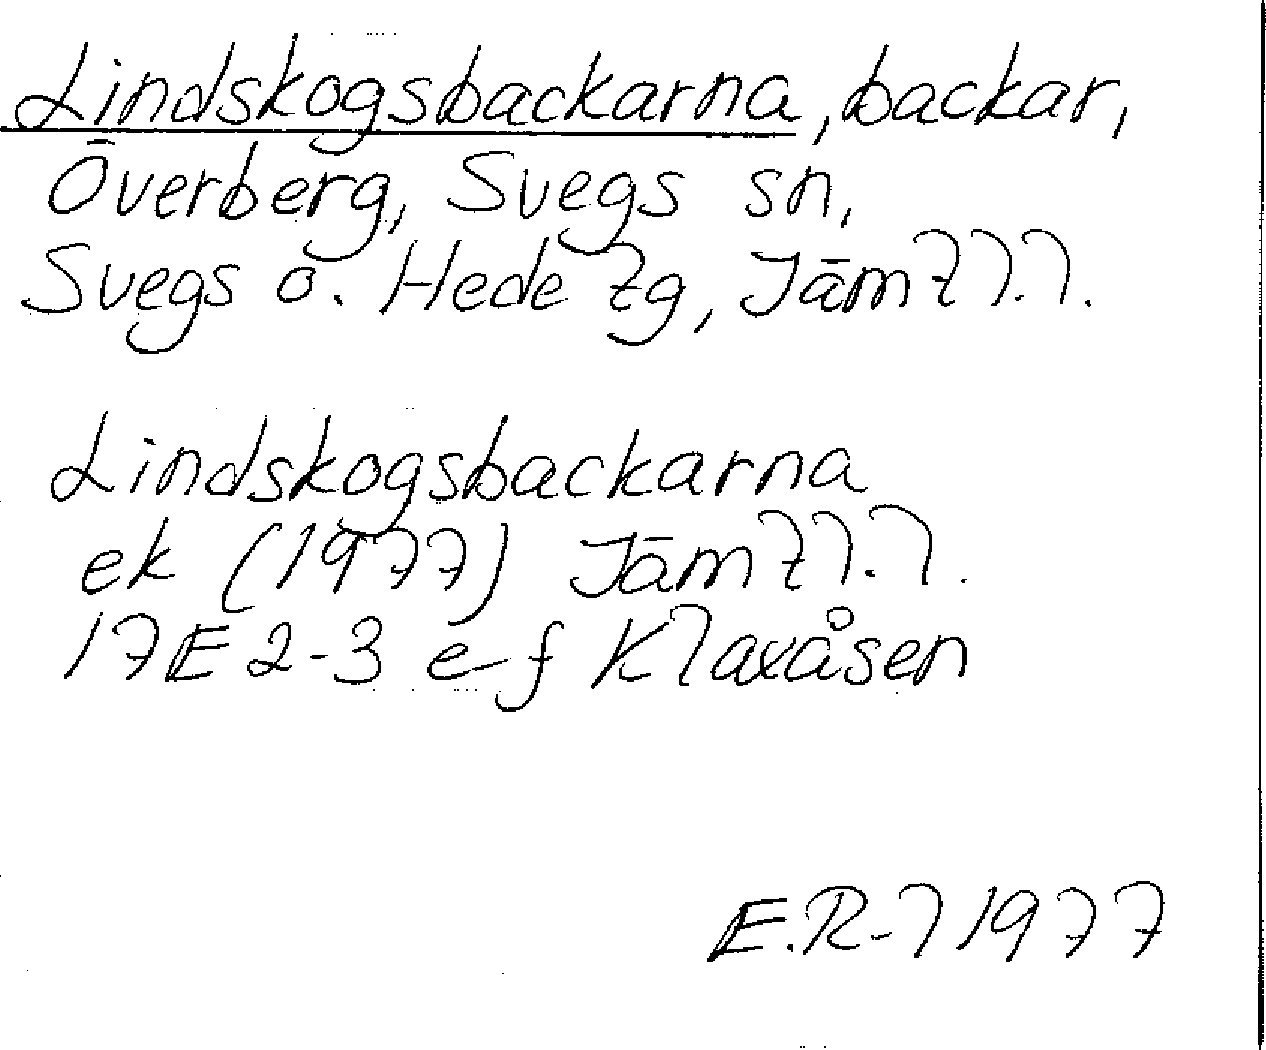 Lindskogsbackarna, backar,
Överberg, Svegs sn,
Svegs o. Hede tg, Jämtl.l.
Lindskogsbackarna
ek (1977) Jämtl.l.
17E 2-3 e-f Klaxåsen
E.R-l 1977